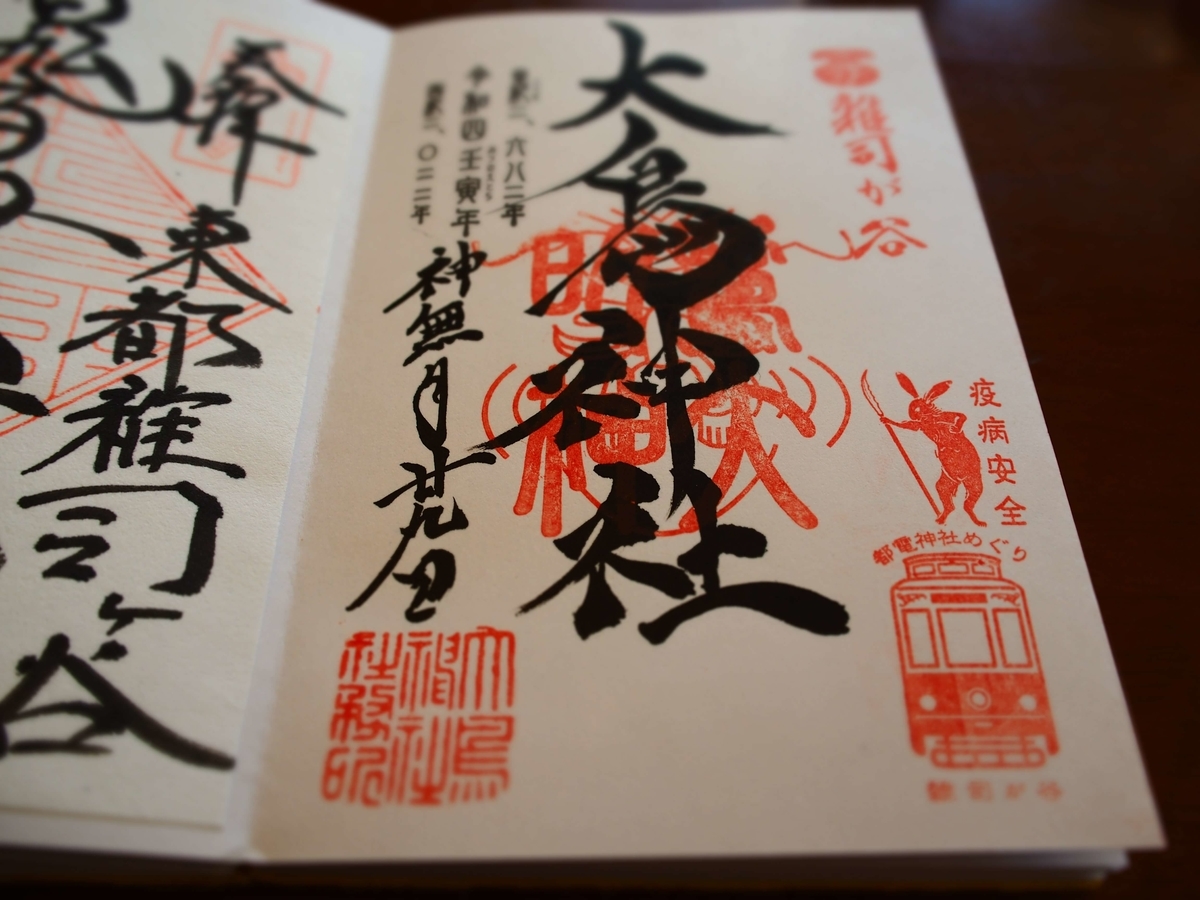 雑司が谷
疫病安全
都電神社めぐり
雑司が谷
大鳥神社
皇紀二、六八二年
令和四壬寅年
西暦二、〇二二年
神無月廿九日
大鳥
神社
社務印
奉拝
東都雑司ヶ谷